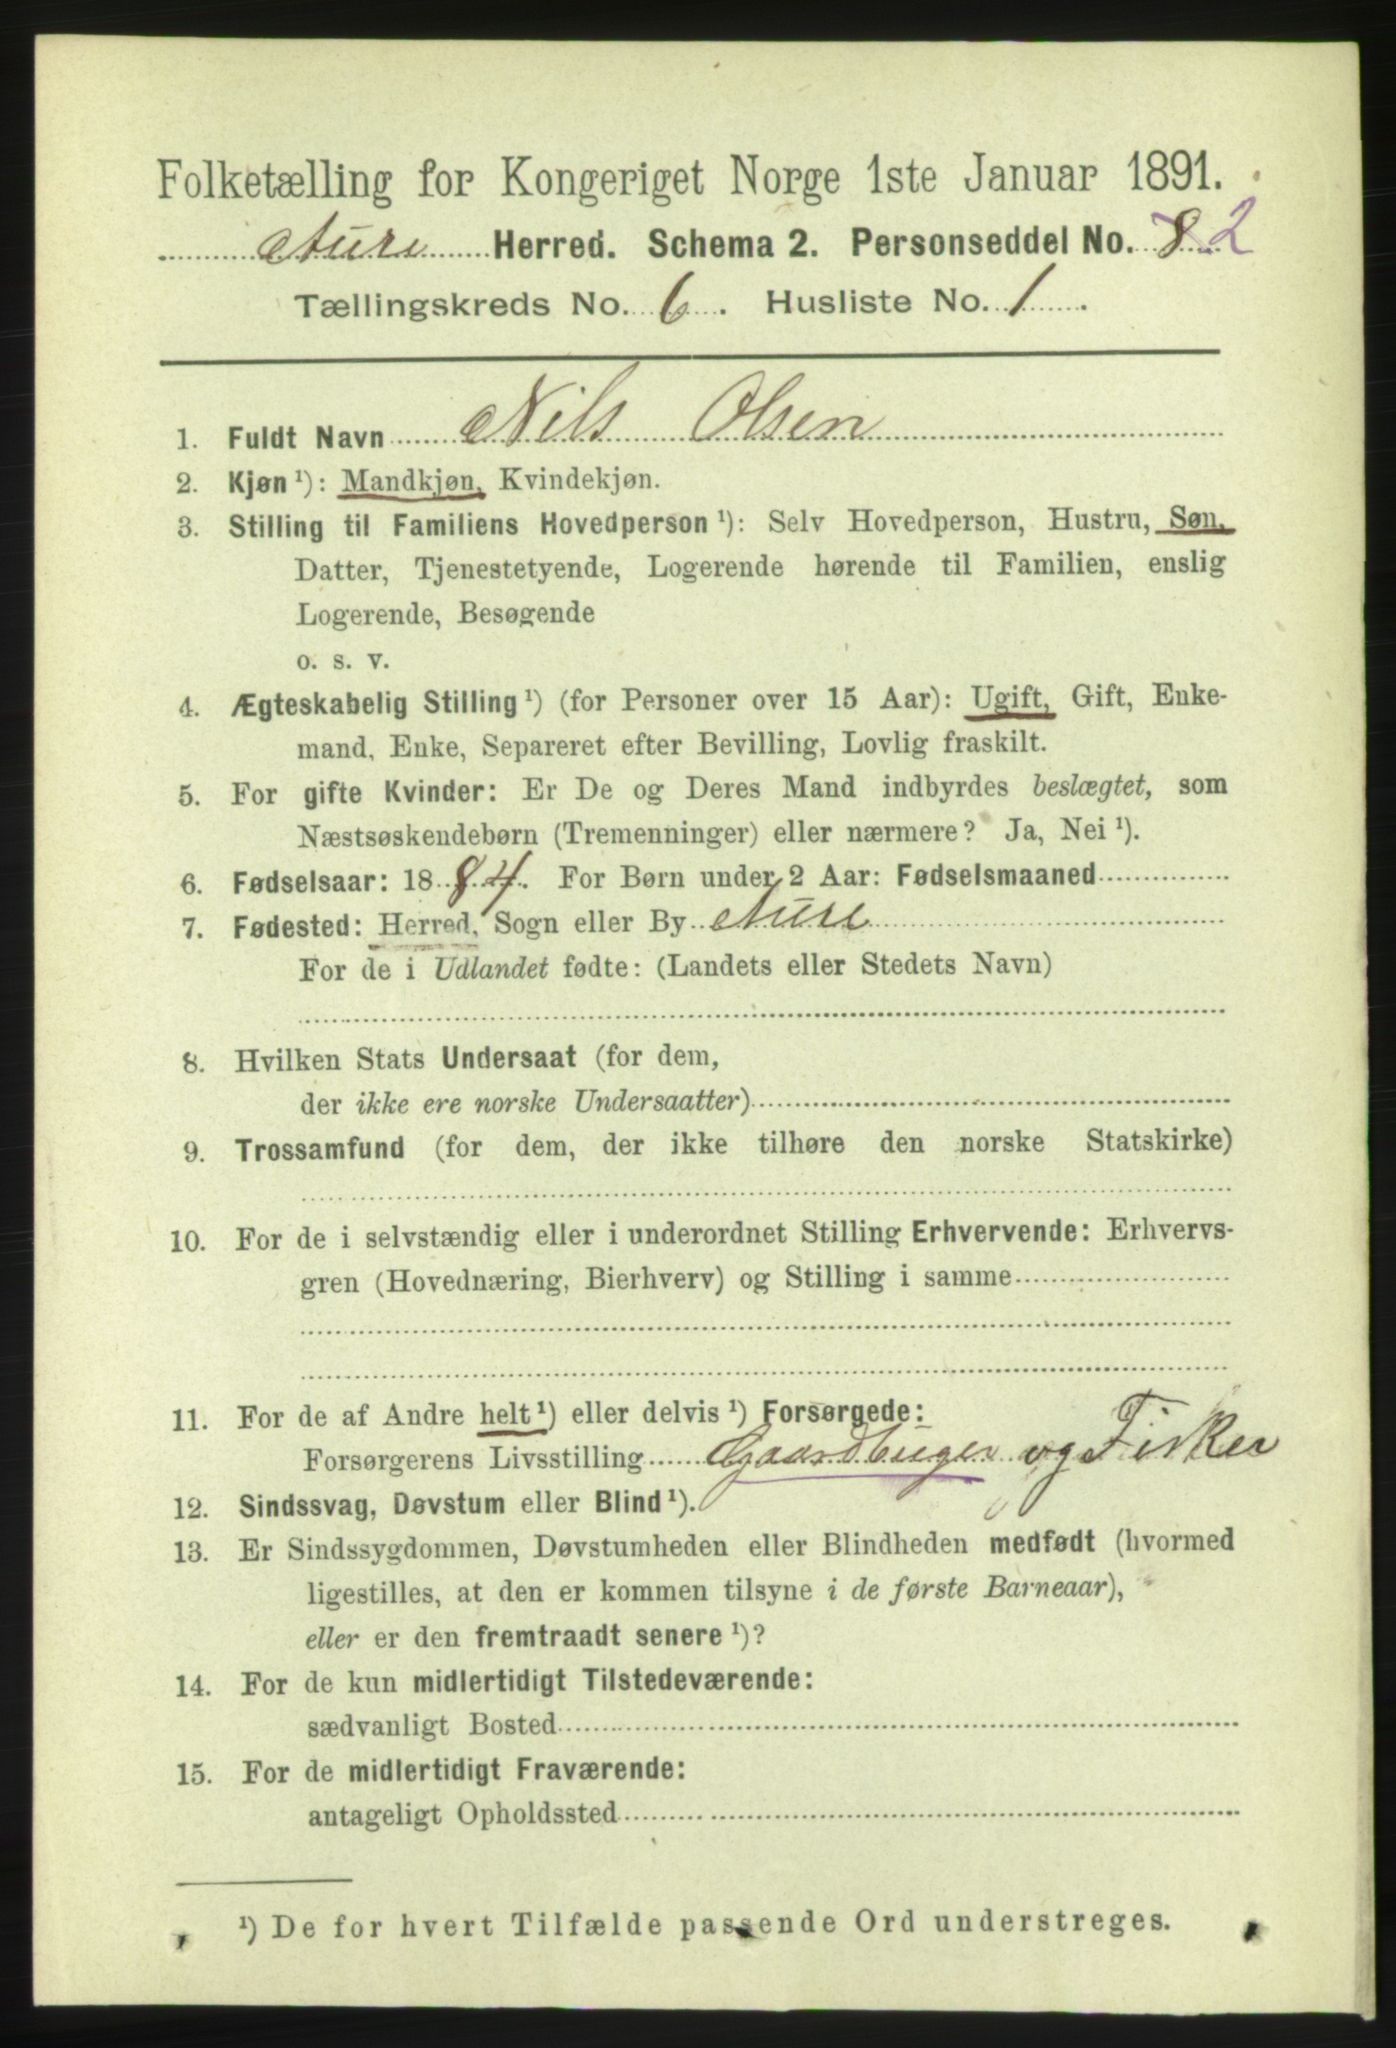 Folketælling for Kongeriget Norge 1ste Januar 1891.
Aure Herred. Schema 2. Personseddel No. 8 2
Tællingskreds No. 6. Husliste No. 1.
1. Fuldt Navn Nils Olsen
2. Kjøn ¹): Mandkjøn, Kvindekjøn.
3. Stilling til Familiens Hovedperson ¹): Selv Hovedperson, Hustru, Søn,
Datter, Tjenestetyende, Logerende hørende til Familien, enslig
Logerende, Besøgende
o. s. v.
4. Ægteskabelig Stilling ¹) (for Personer over 15 Aar): Ugift, Gift, Enke-
mand, Enke, Separeret efter Bevilling, Lovlig fraskilt.
5. For gifte Kvinder: Er De og Deres Mand indbyrdes beslægtet, som
Næstsøskendebørn (Tremenninger) eller nærmere? Ja, Nei ¹).
6. Fødselsaar: 1884. For Børn under 2 Aar: Fødselsmaaned
7. Fødested: Herred, Sogn eller By Aure
For de i Udlandet fødte: (Landets eller Stedets Navn)
8. Hvilken Stats Undersaat (for dem,
der ikke ere norske Undersaatter)
9. Trossamfund (for dem, der ikke tilhøre den norske Statskirke)
10. For de i selvstændig eller i underordnet Stilling Erhvervende: Erhvervs-
gren (Hovednæring, Bierhverv) og Stilling i samme
11. For de af Andre helt ¹) eller delvis ¹) Forsørgede:
Forsørgerens Livsstilling Gaardbuger og Fisker
12. Sindssvag, Døvstum eller Blind ¹).
13. Er Sindssygdommen, Døvstumheden eller Blindheden medfødt (hvormed
ligestilles, at den er kommen tilsyne i de første Barneaar),
eller er den fremtraadt senere ¹)?
14. For de kun midlertidigt Tilstedeværende:
sædvanligt Bosted
15. For de midlertidigt Fraværende:
antageligt Opholdssted
¹) De for hvert Tilfælde passende Ord understreges.